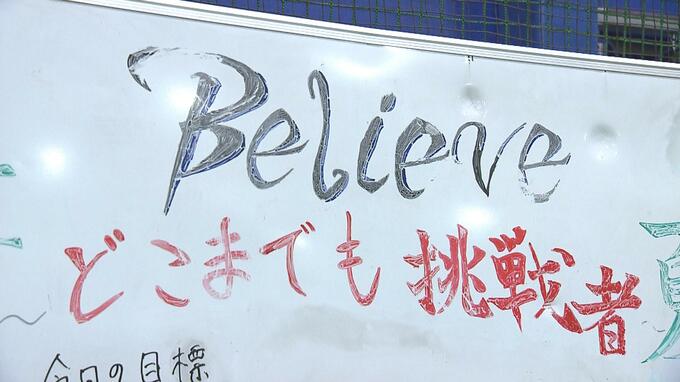 Believe
どこまでも挑戦者
今日の目標